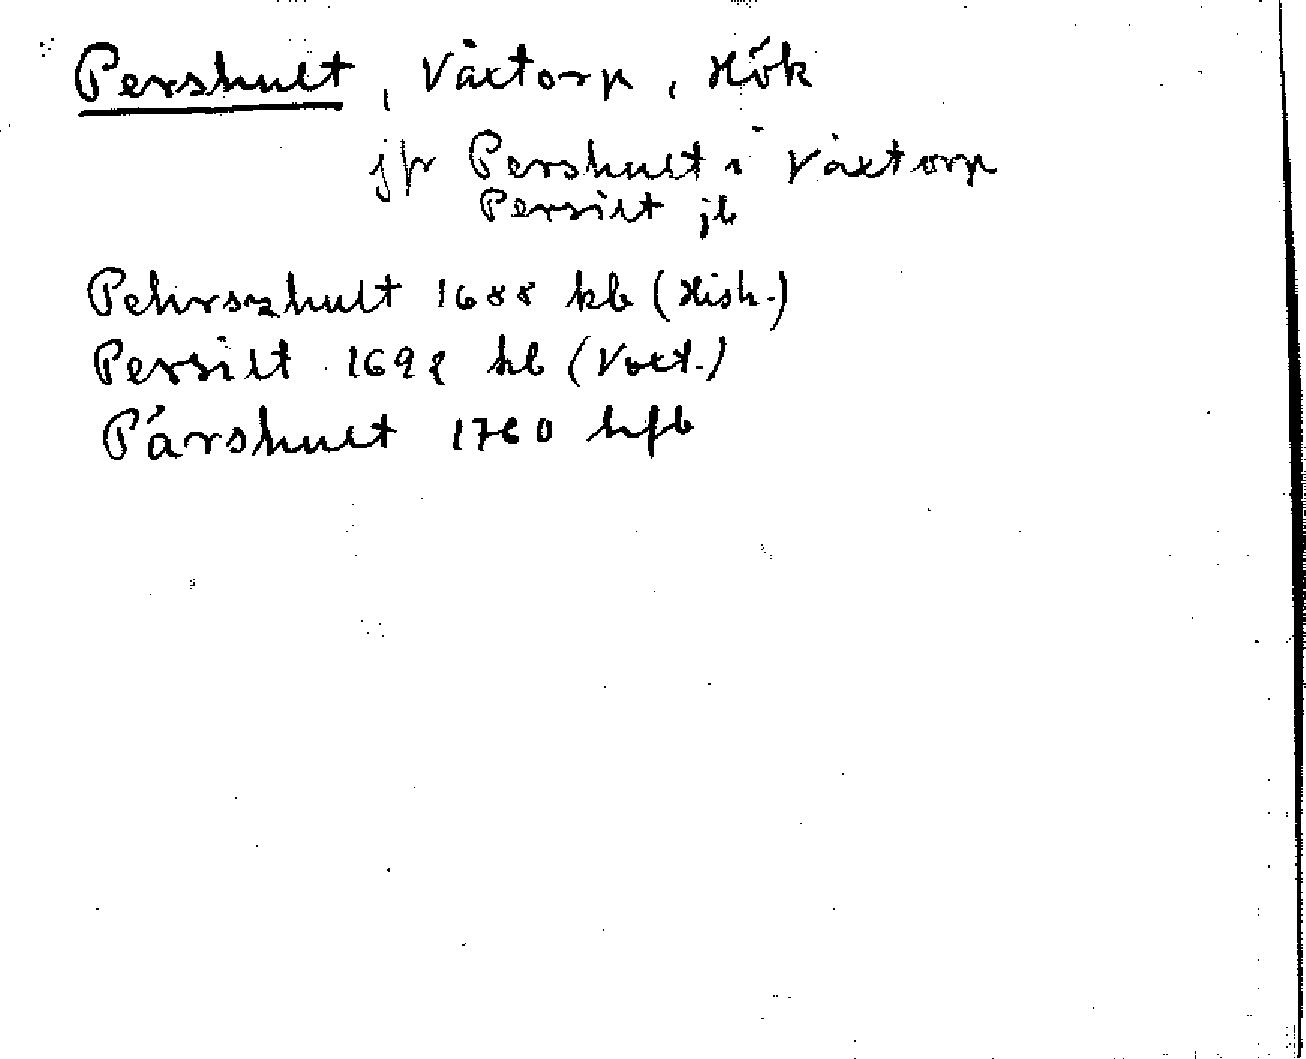 Pershult, Våxtorp, Hök
jfr Pershult i Våxtorp
Persilt jb
Pehrszhult 1688 kb (Hish.)
Persilt 1692 kb (Voxt.)
Pärshult 1760 hfb